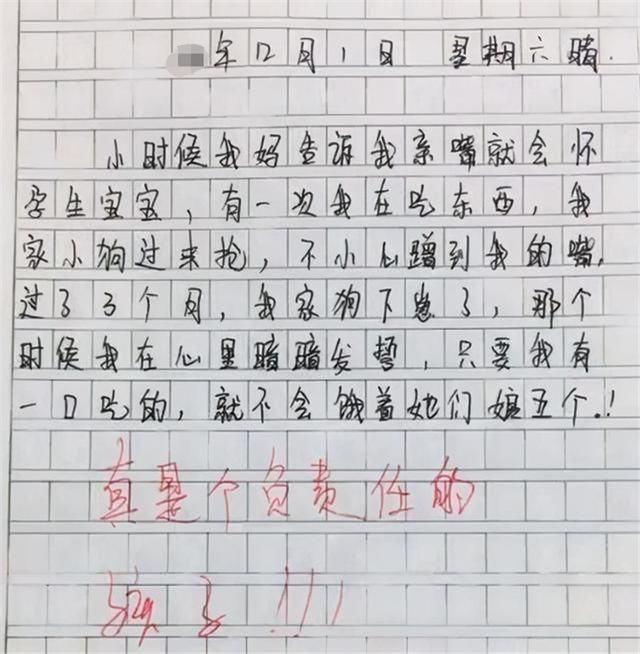 年12月1日 星期六晴.
小时候我妈告诉我亲嘴就会怀
孕生宝宝，有一次我在吃东西，我
家小狗过来抢，不小心蹭到我的嘴，
过了3个月，我家狗下崽了，那个
时候我在心里暗暗发誓，只要我有
一口吃的，就不会饿着她们娘五个.！
真是个负责任的
孩子！！！